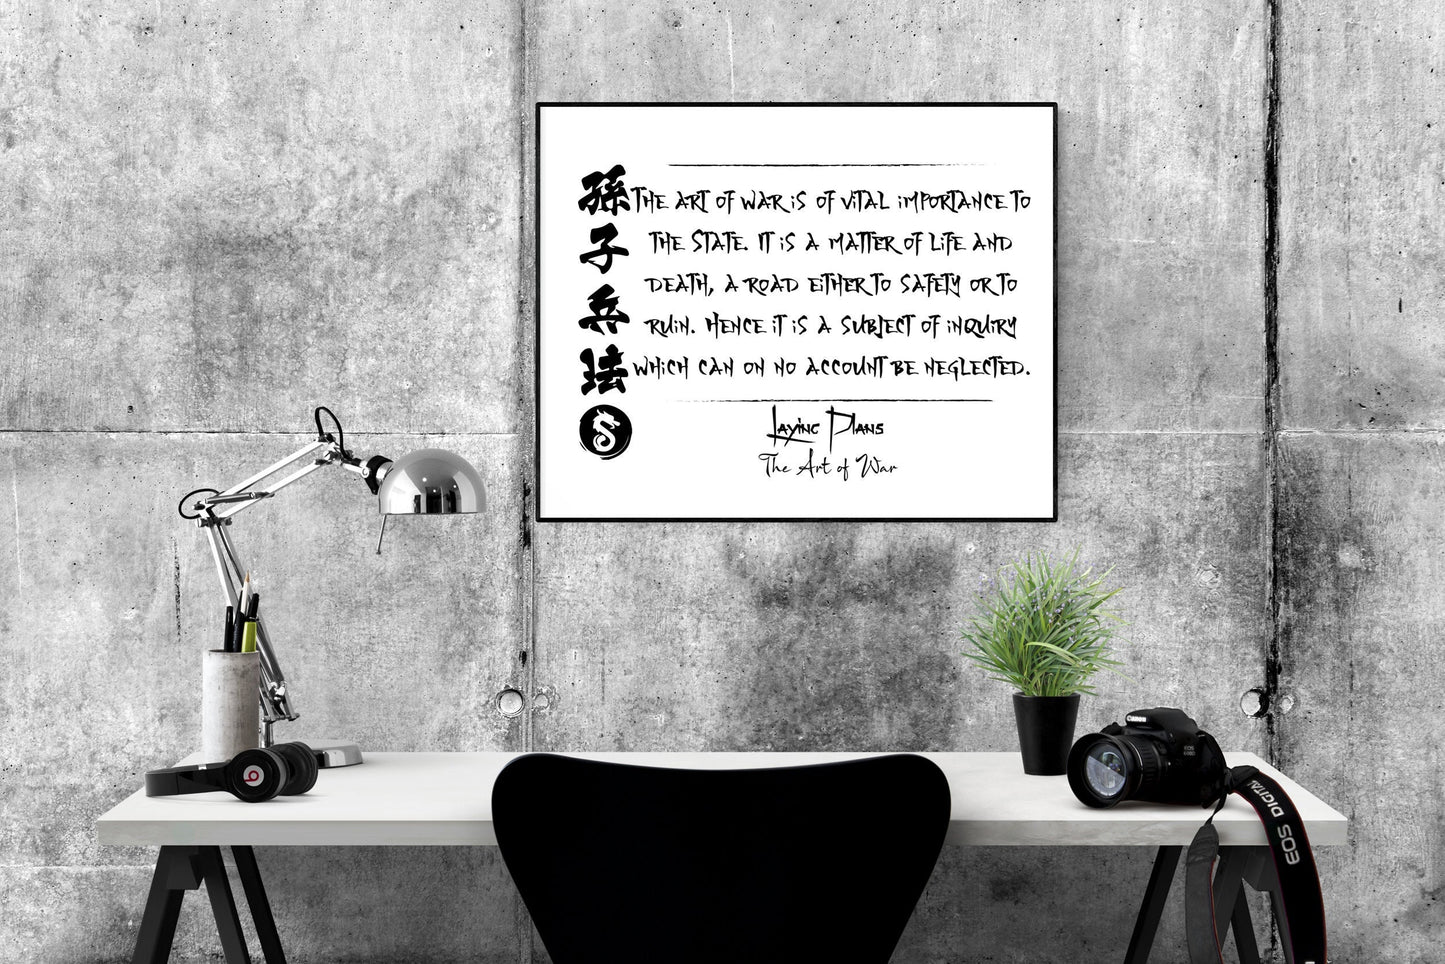 孫子兵法
THE ART OF WAR IS OF VITAL IMPORTANCE TO
THE STATE. IT IS A MATTER OF LIFE AND
DEATH, A ROAD EITHER TO SAFETY OR TO
RUIN. HENCE IT IS A SUBJECT OF INQUIRY
WHICH CAN ON NO ACCOUNT BE NEGLECTED.
Laying Plans
The Art of War
Canon
EOS
600D
EOS DIGITAL
b